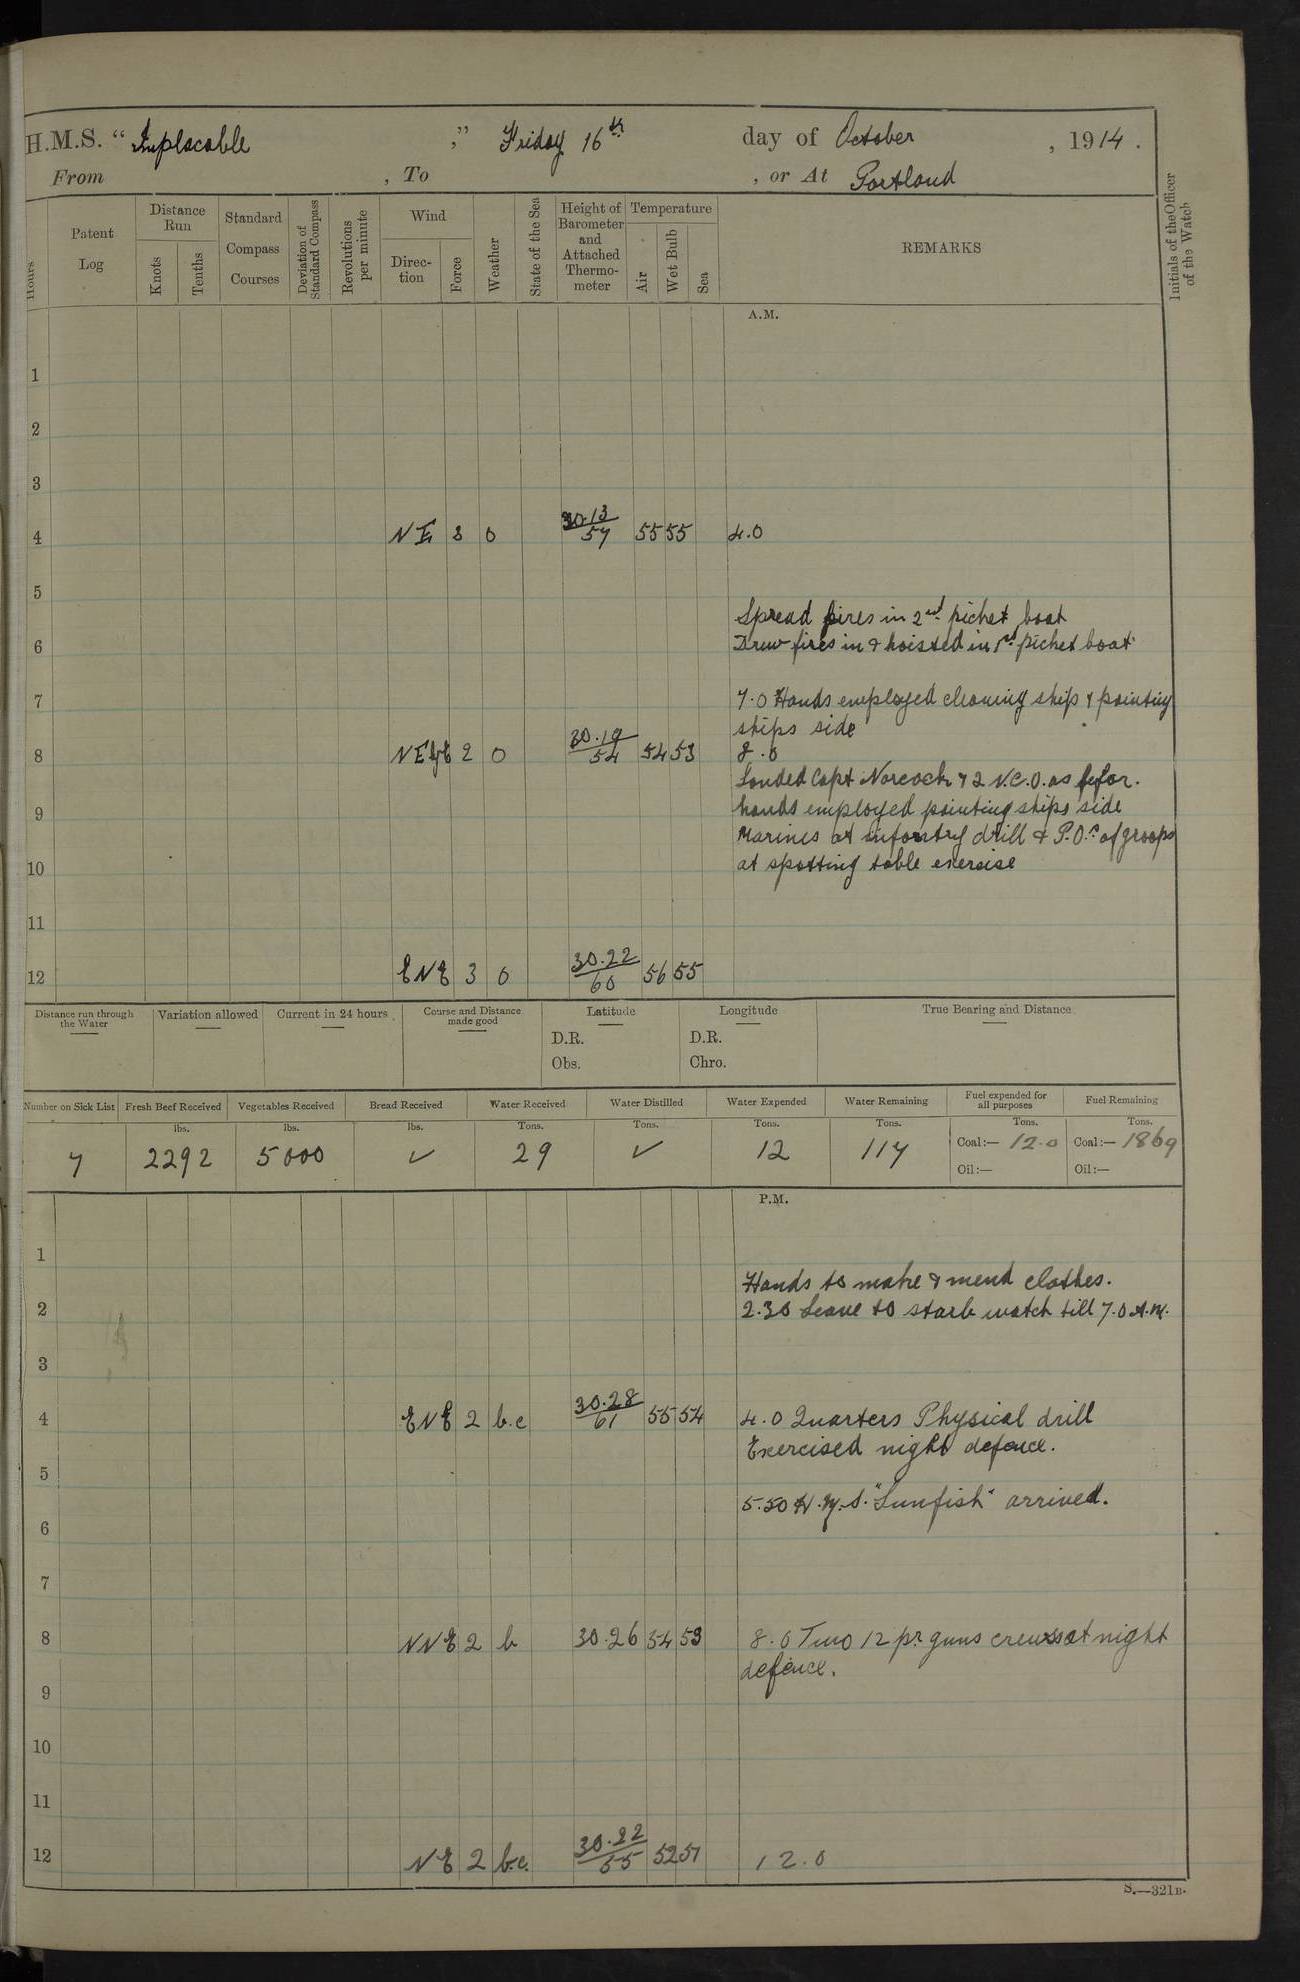 H.M.S. “Implacable”, Friday 16th day of October, 1914.
From , To , or At Portland
Hours
Patent Log
Distance Run
Knots
Tenths
Standard Compass Courses
Deviation of Standard Compass
Revolutions per minute
Wind
Direction
Force
Weather
State of the Sea
Height of Barometer and Attached Thermometer
Temperature
Air
Wet Bulb
Sea
REMARKS
Initials of the Officer of the Watch
A.M.
1
2
3
4 NE 3 o 30.13/57 55 55 4.0
5
Spread fires in 2nd picket boat
6 Drew fires in & hoisted in 1st picket boat
7 7.0 Hands employed cleaning ship & painting
ships side
8 NEbyE 2 o 30.19/54 54 53 8.0
Landed Capt Norcock & 2 N.C.O. as
9 hands employed painting ships side
Marines at infantry drill & P.O.s of groops
10 at spotting table exercise
11
12 ENE 3 o 30.22/60 56 55
Distance run through the Water
Variation allowed
Current in 24 hours
Course and Distance made good
Latitude
D.R.
Obs.
Longitude
D.R.
Chro.
True Bearing and Distance
Number on Sick List 7
Fresh Beef Received lbs. 2292
Vegetables Received lbs. 5000
Bread Received lbs. ✓
Water Received Tons. 29
Water Distilled Tons. ✓
Water Expended Tons. 12
Water Remaining Tons. 117
Fuel expended for all purposes Tons. Coal:— 12.0 Oil:—
Fuel Remaining Tons. Coal:— 1869 Oil:—
P.M.
1
Hands to make & mend clothes.
2 2.30 Leave to starb watch till 7.0 A.M.
3
4 ENE 2 b.c 30.28/61 55 54 4.0 Quarters Physical drill
Exercised night defence.
5
5.50 H.M.S. "Sunfish" arrived.
6
7
8 NNE 2 b 30.26 54 53 8.0 Two 12 pr guns crews at night
defence.
9
10
11
12 NE 2 b.c. 30.22/55 52 51 12.0
S.—321B.